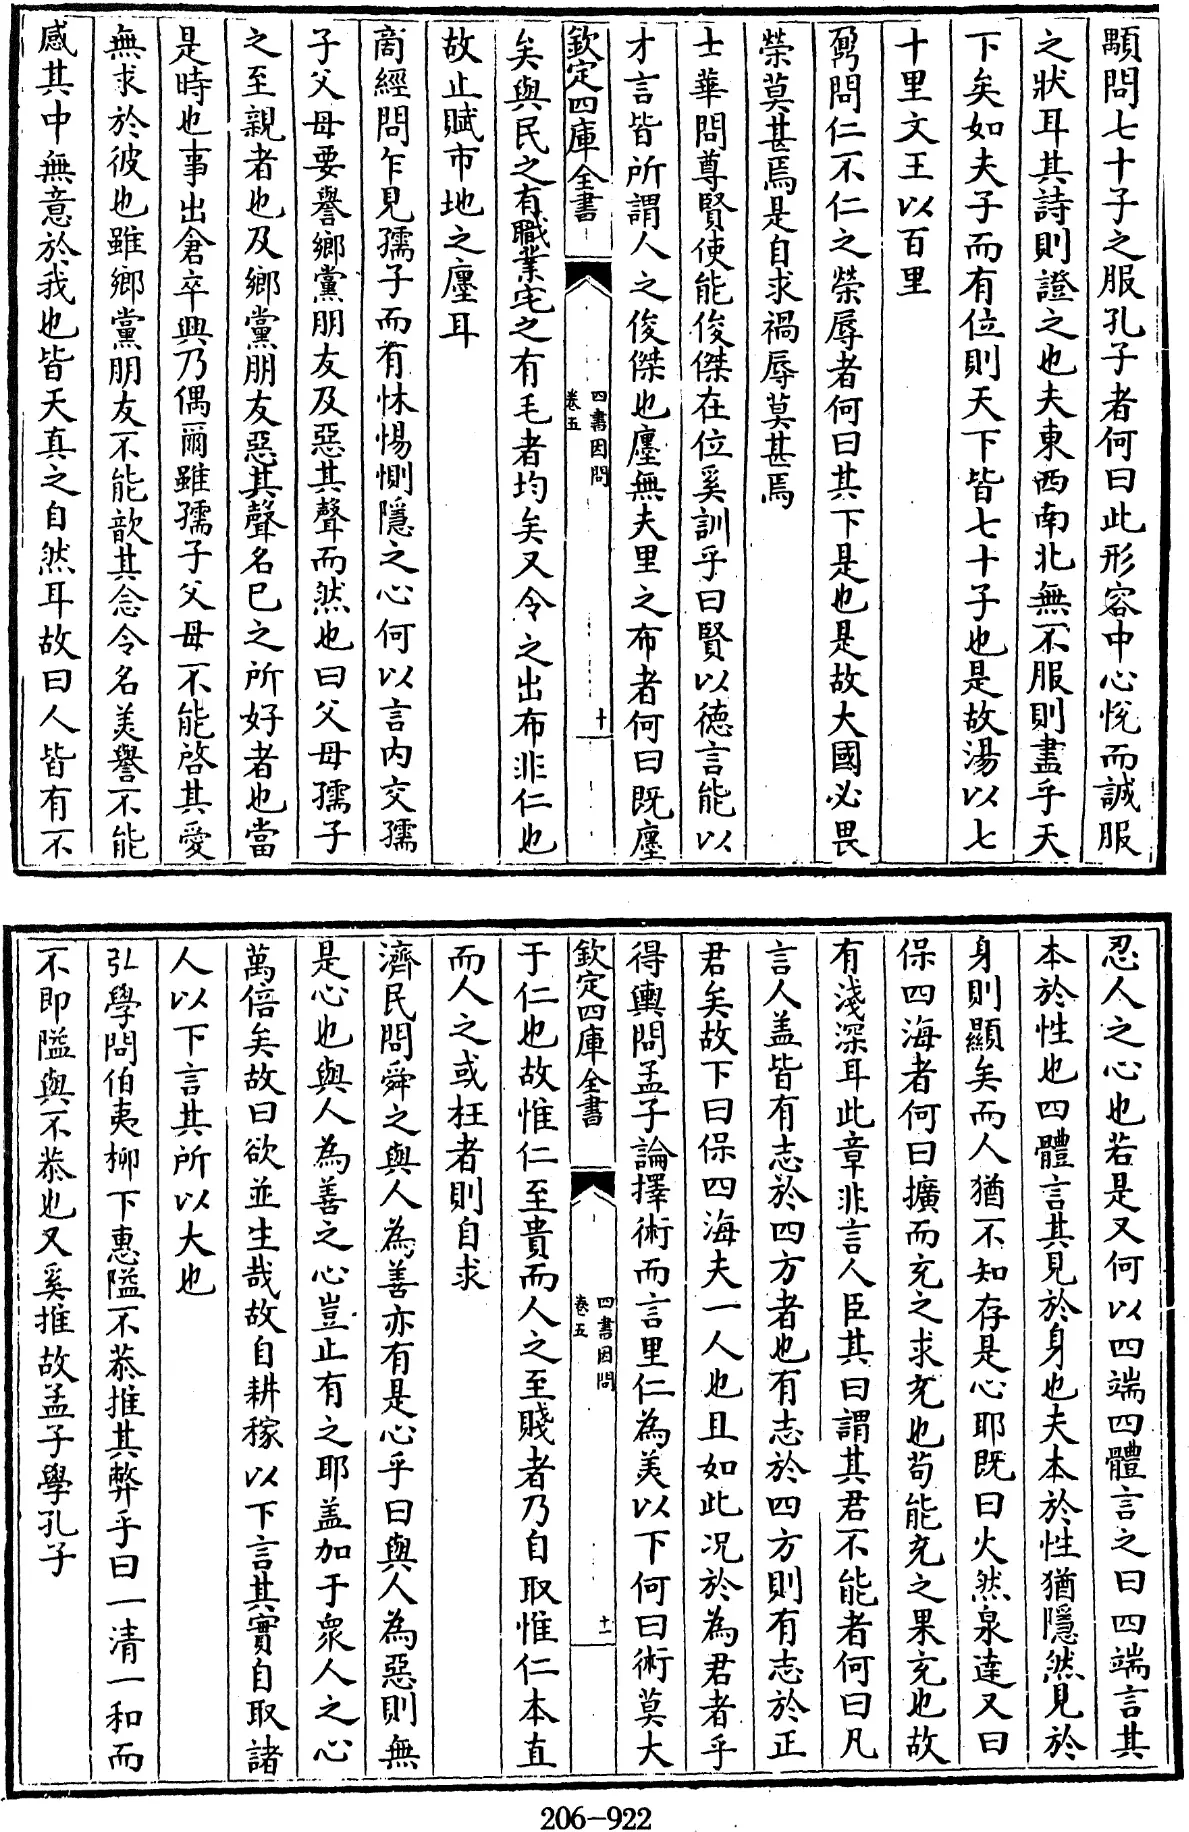 顒問七十子之服孔子者何曰此形容中心悅而誠服
之狀耳其詩則證之也夫東西南北無不服則盡乎天
下矣如夫子而有位則天下皆七十子也是故湯以七
十里文王以百里
問仁不仁之榮辱者何曰其下是也是故大國必畏
榮莫甚焉是自求禍辱莫甚焉
士華問尊賢使能俊傑在位奚訓乎曰賢以德言能以
才言皆所謂人之俊傑也廛無夫里之布者何曰既廛
欽定四庫全書
四書因問
卷五
十
矣與民之有職業宅之有毛者均矣又令之出布非仁也
故止賦市地之廛耳
商經問乍見孺子而有怵惕惻隱之心何以言内交孺
子父母要譽鄉黨朋友及惡其聲而然也曰父母孺子
之至親者也及鄉黨朋友惡其聲名已之所好者也當
是時也事出倉卒興乃偶爾雖孺子父母不能啓其愛
無求於彼也雖鄉黨朋友不能歆其念令名美譽不能
感其中無意於我也皆天真之自然耳故曰人皆有不
忍人之心也若是又何以四端四體言之曰四端言其
本於性也四體言其見於身也夫本於性猶隱然見於
身則顯矣而人猶不知存是心耶既曰火然泉達又曰
保四海者何曰擴而充之求充也苟能充之果充也故
有淺深耳此章非言人臣其曰謂其君不能者何曰凡
言人盖皆有志於四方者也有志於四方則有志於正
君矣故下曰保四海夫一人也且如此况於為君者乎
得輿問孟子論擇術而言里仁為美以下何曰術莫大
欽定四庫全書
四書因問
卷五
十一
于仁也故惟仁至貴而人之至賤者乃自取惟仁本直
而人之或枉者則自求
濟民問舜之與人為善亦有是心乎曰與人為惡則無
是心也與人為善之心豈止有之耶盖加于衆人之心
萬倍矣故曰欲並生哉故自耕稼以下言其實自取諸
人以下言其所以大也
弘學問伯夷柳下惠隘不恭推其弊乎曰一清一和而
不即隘與不恭也又奚推故孟子學孔子
206-922